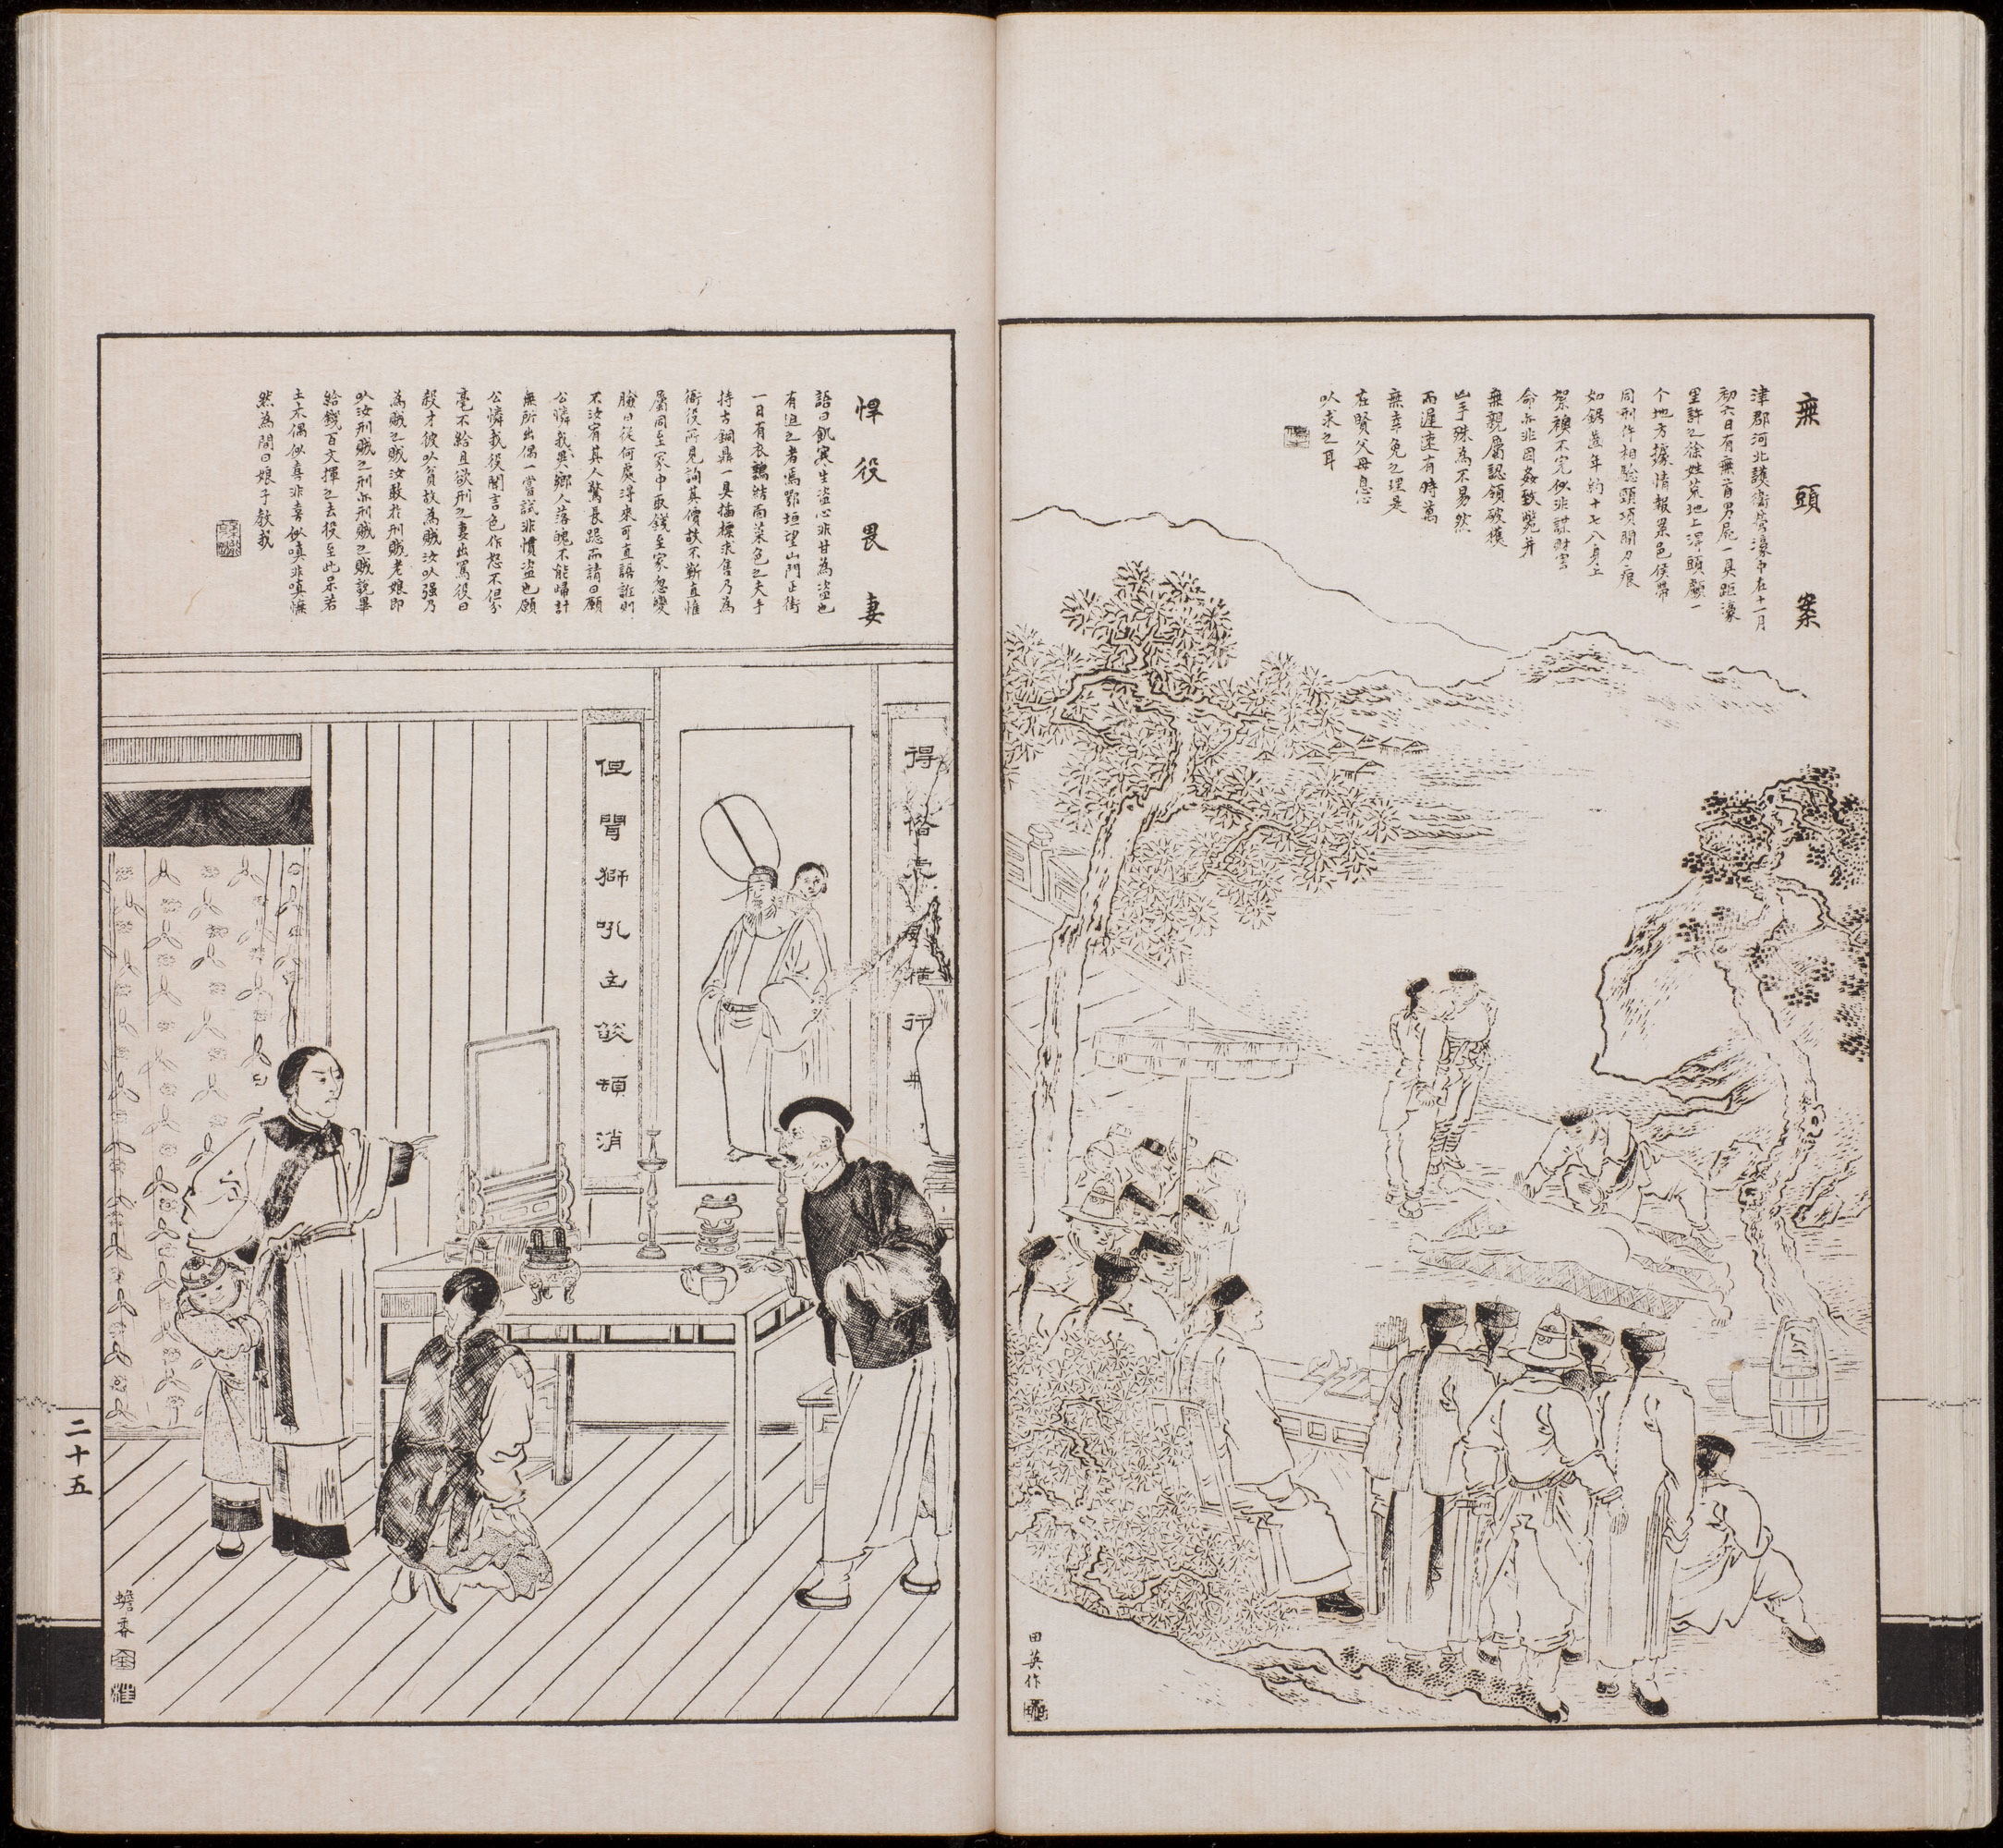 無頭案
津郡河北護衛營濠中在十一月
初六日有無首男屍一具距濠
里許之徐姓荒地上渟頭顱一
个地方據情報案邑侯帶
同刑仵相驗頭項間刀痕
如鋸蓋年約十七八身上
絮襖不完似非謀財害
命亦非因姦致斃并
無親屬認領破獲
凶手殊為不易然
而遲速有時萬
無幸免之理是
在賢父母息心
以求之耳
田英作
悍役畏妻
語曰飢寒生盜心非甘為盜也
有迫之者焉鄂垣望山門正街
一日有衣鶉結而菜色之夫手
持古銅鼎一具插標求售乃為
衙役所見詢其價故不靳直惟
屬同至家中取錢至家忽變
臉曰從何處淂來可直語誑則
不汝宥其人驚長跽而請曰願
公憐我異鄉人落魄不能歸計
無所出偶一嘗試非慣盜也願
公憐我役聞言色作怒不但分
毫不給且欲刑之妻出罵役曰
殺才彼以貧故為賊汝以强乃
為賊之賊汝敢於刑賊老娘即
以汝刑賊之刑亦刑賊之賊說畢
給錢百文揮之去役至此呆若
土木偶似喜非喜似嗔非嗔憮
然為間曰娘子教我
得
行
但聞獅吼主燄頓消
蟾香
二十五